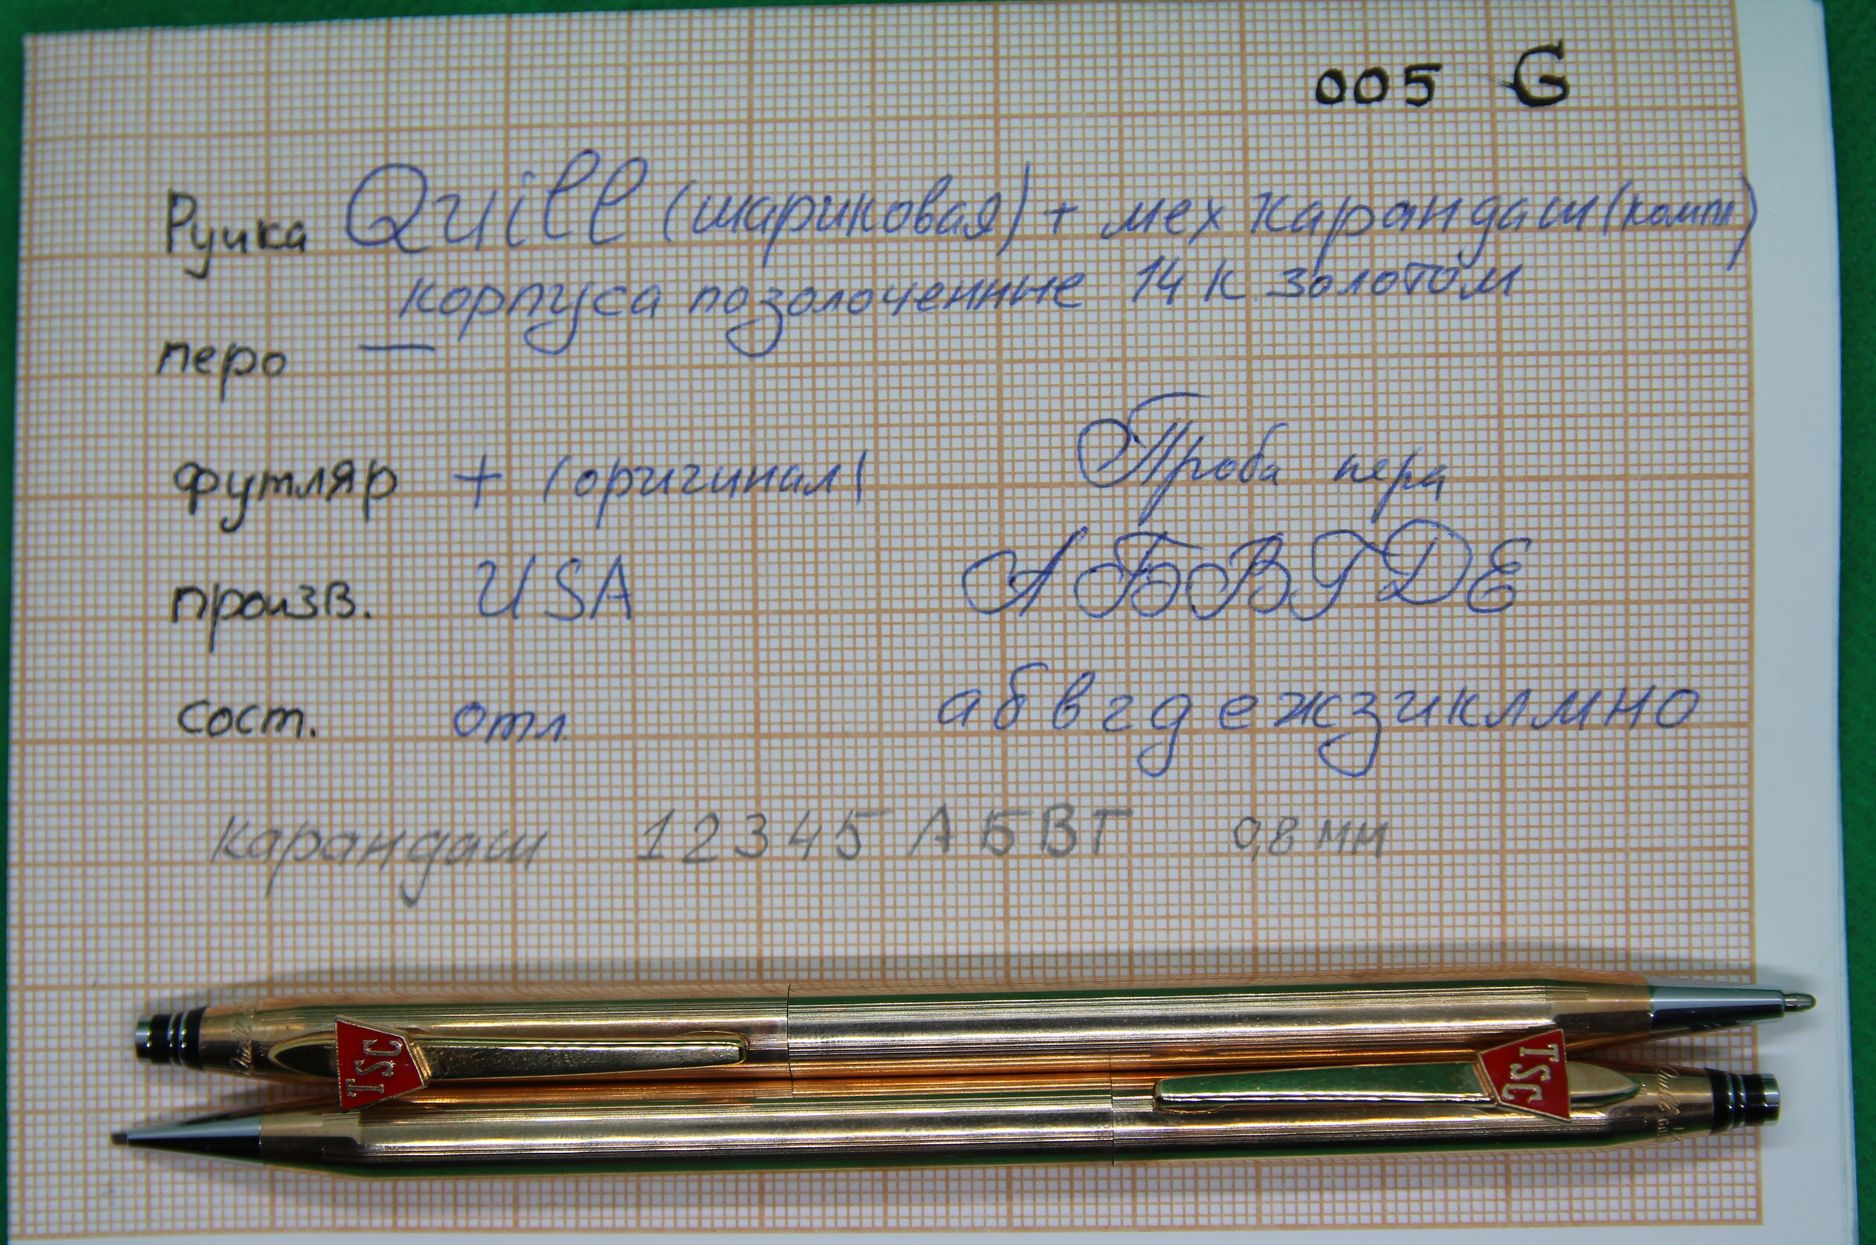 005 G
Ручка Quill (шариковая) + мех карандаш (компл)
корпуса позолоченные 14 к золотом
перо —
футляр + (оригинал)
Проба пера
произв. USA
А Б В Г Д Е
сост. отл.
а б в г д е ж з и к л м н о
карандаш 1 2 3 4 5 А Б В Г 0,8 мм
TSC
TSC
Quill